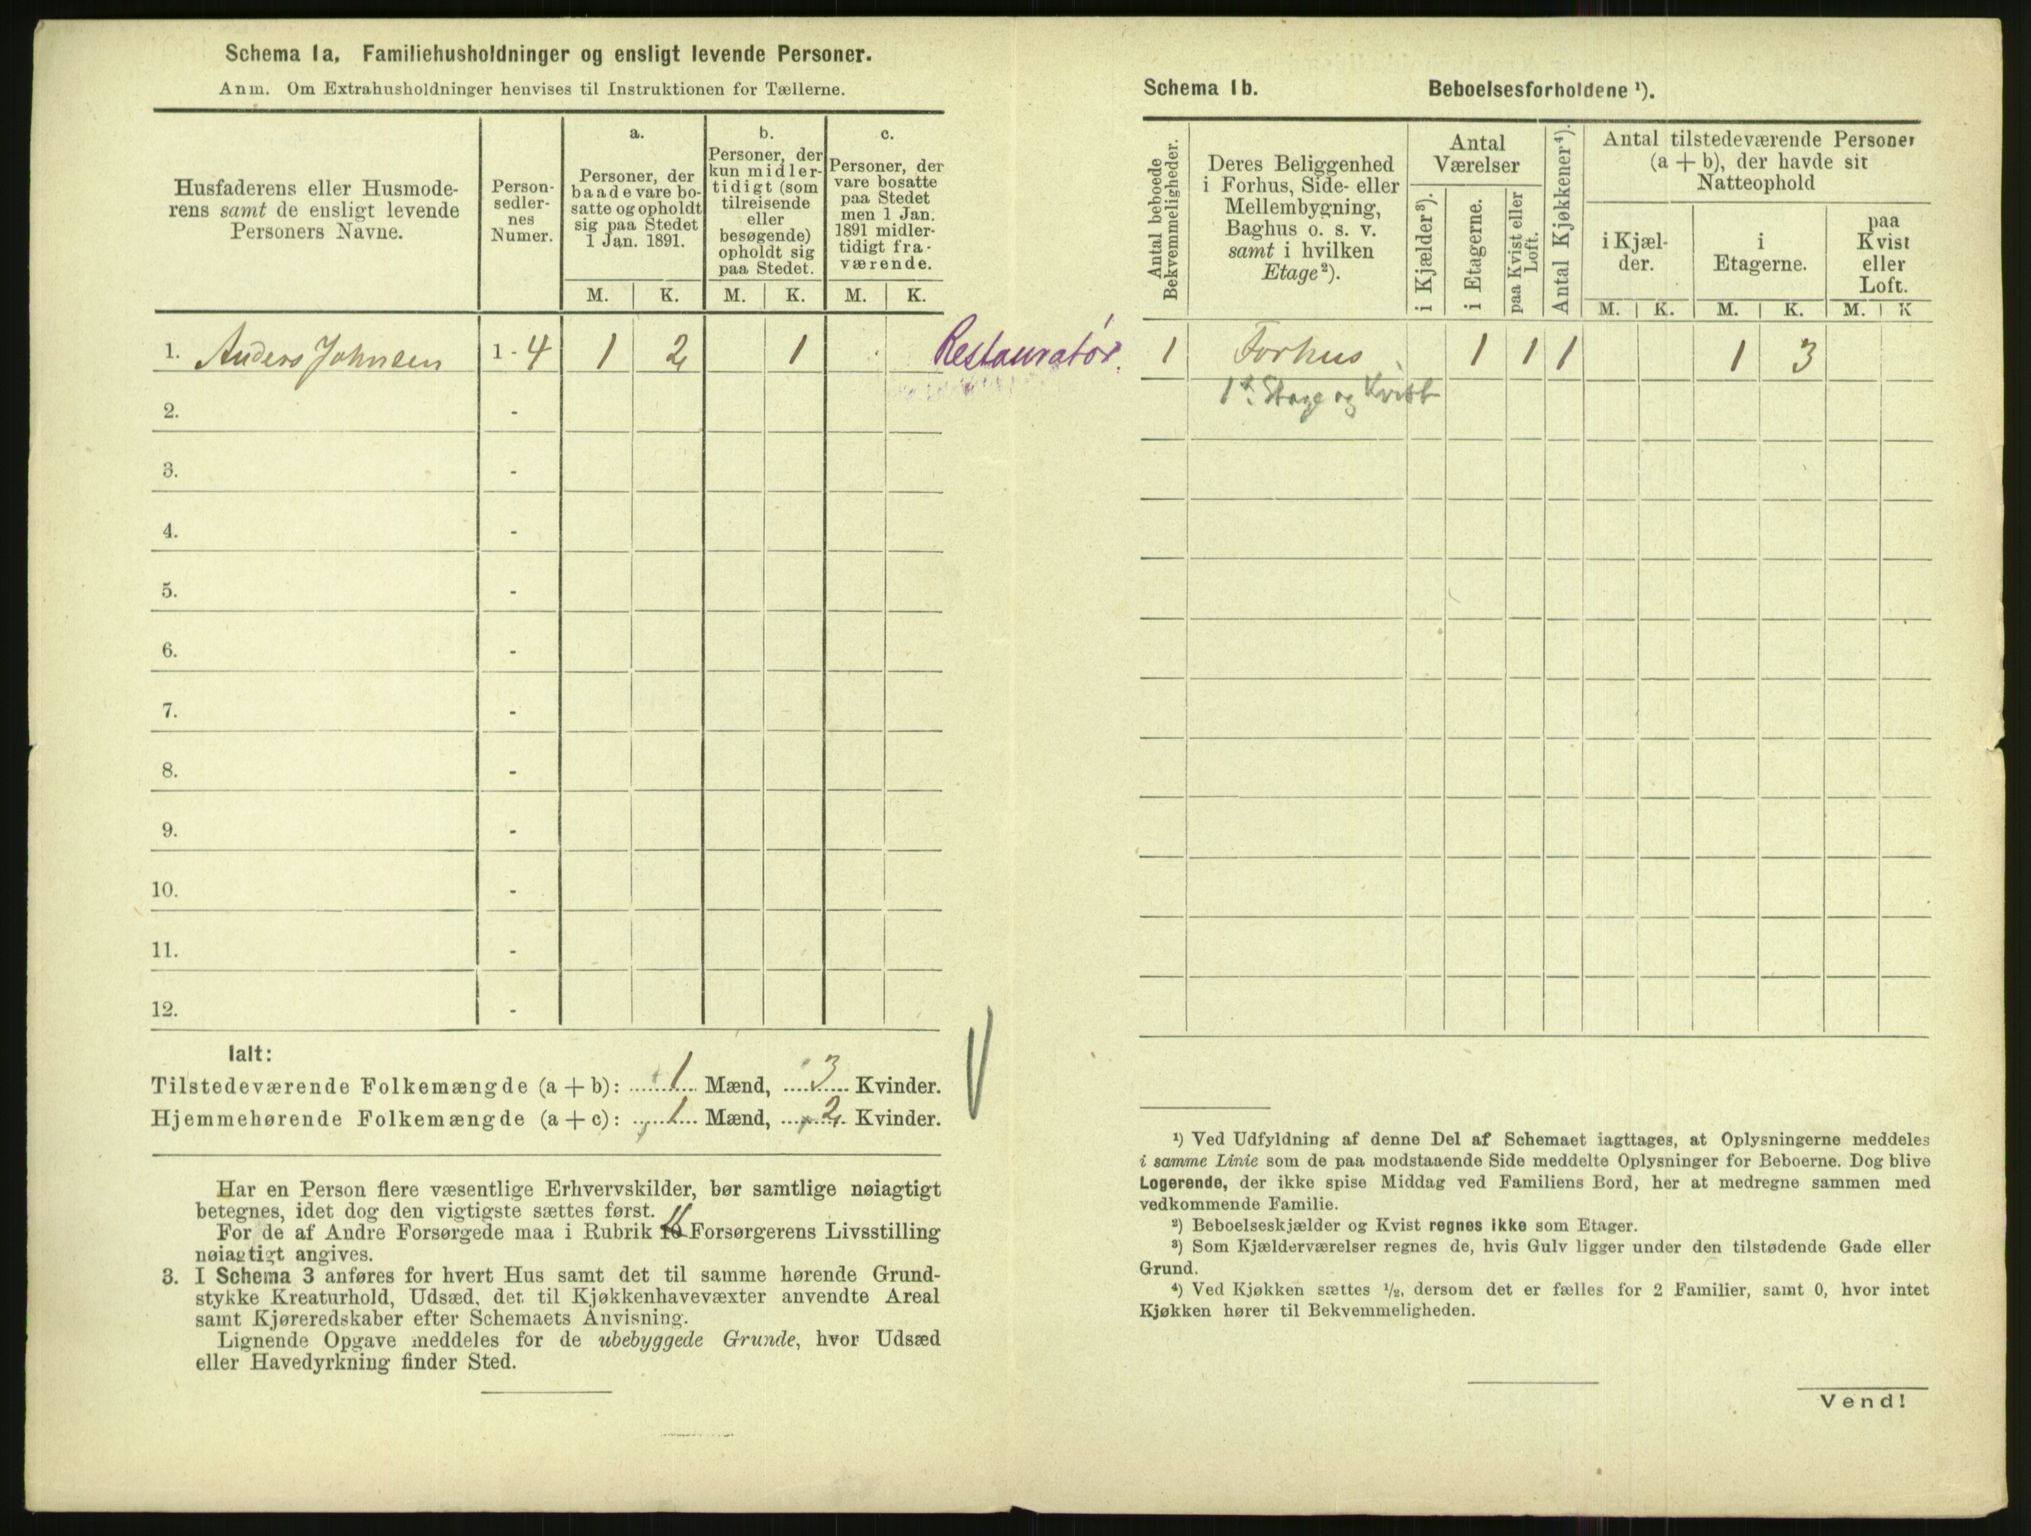 Schema 1a. Familiehusholdninger og ensligt levende Personer.
Anm. Om Extrahusholdninger henvises til Instruktionen for Tællerne.
Husfaderens eller Husmode-
rens samt de ensligt levende
Personers Navne.
Person-
sedler-
nes
Numer.
a.
Personer, der
baade vare bo-
satte og opholdt
sig paa Stedet
1 Jan. 1891.
b.
Personer, der
kun midler-
tidigt (som
tilreisende
eller
besøgende)
opholdt sig
paa Stedet.
c.
Personer, der
vare bosatte
paa Stedet
men 1 Jan.
1891 midler-
tidigt fra-
værende.
M. K. M. K. M. K.
1. Anders Johnsen 1 - 4 1 2 1 Restauratør.
2. -
3. -
4. -
5. -
6. -
7. -
8. -
9. -
10. -
11. -
12. -
Ialt:
Tilstedeværende Folkemængde (a + b): 1 Mænd, 3 Kvinder.
Hjemmehørende Folkemængde (a + c): 1 Mænd, 2 Kvinder.
Har en Person flere væsentlige Erhvervskilder, bør samtlige nøiagtigt
betegnes, idet dog den vigtigste sættes først.
For de af Andre Forsørgede maa i Rubrik 11 Forsørgerens Livsstilling
nøiagtigt angives.
3. I Schema 3 anføres for hvert Hus samt det til samme hørende Grund-
stykke Kreaturhold, Udsæd, det til Kjøkkenhavevæxter anvendte Areal
samt Kjøreredskaber efter Schemaets Anvisning.
Lignende Opgave meddeles for de ubebyggede Grunde, hvor Udsæd
eller Havedyrkning finder Sted.
Schema 1b. Beboelsesforholdene ¹).
Antal beboede
Bekvemmeligheder.
Deres Beliggenhed
i Forhus, Side- eller
Mellembygning,
Baghus o. s. v.
samt i hvilken
Etage ²).
Antal
Værelser
i Kjælder ³).
i Etagerne.
paa Kvist eller
Loft.
Antal Kjøkkener ⁴).
Antal tilstedeværende Personer
(a + b), der havde sit
Natteophold
i Kjæl-
der.
i
Etagerne.
paa
Kvist
eller
Loft.
M. K. M. K. M. K
1 Forhus 1 1 1 1 3
1ste Etage og Kvist
¹) Ved Udfyldning af denne Del af Schemaet iagttages, at Oplysningerne meddeles
i samme Linie som de paa modstaaende Side meddelte Oplysninger for Beboerne. Dog blive
Logerende, der ikke spise Middag ved Familiens Bord, her at medregne sammen med
vedkommende Familie.
²) Beboelseskjælder og Kvist regnes ikke som Etager.
³) Som Kjælderværelser regnes de, hvis Gulv ligger under den tilstødende Gade eller
Grund.
⁴) Ved Kjøkken sættes ½, dersom det er fælles for 2 Familier, samt 0, hvor intet
Kjøkken hører til Bekvemmeligheden.
Vend!